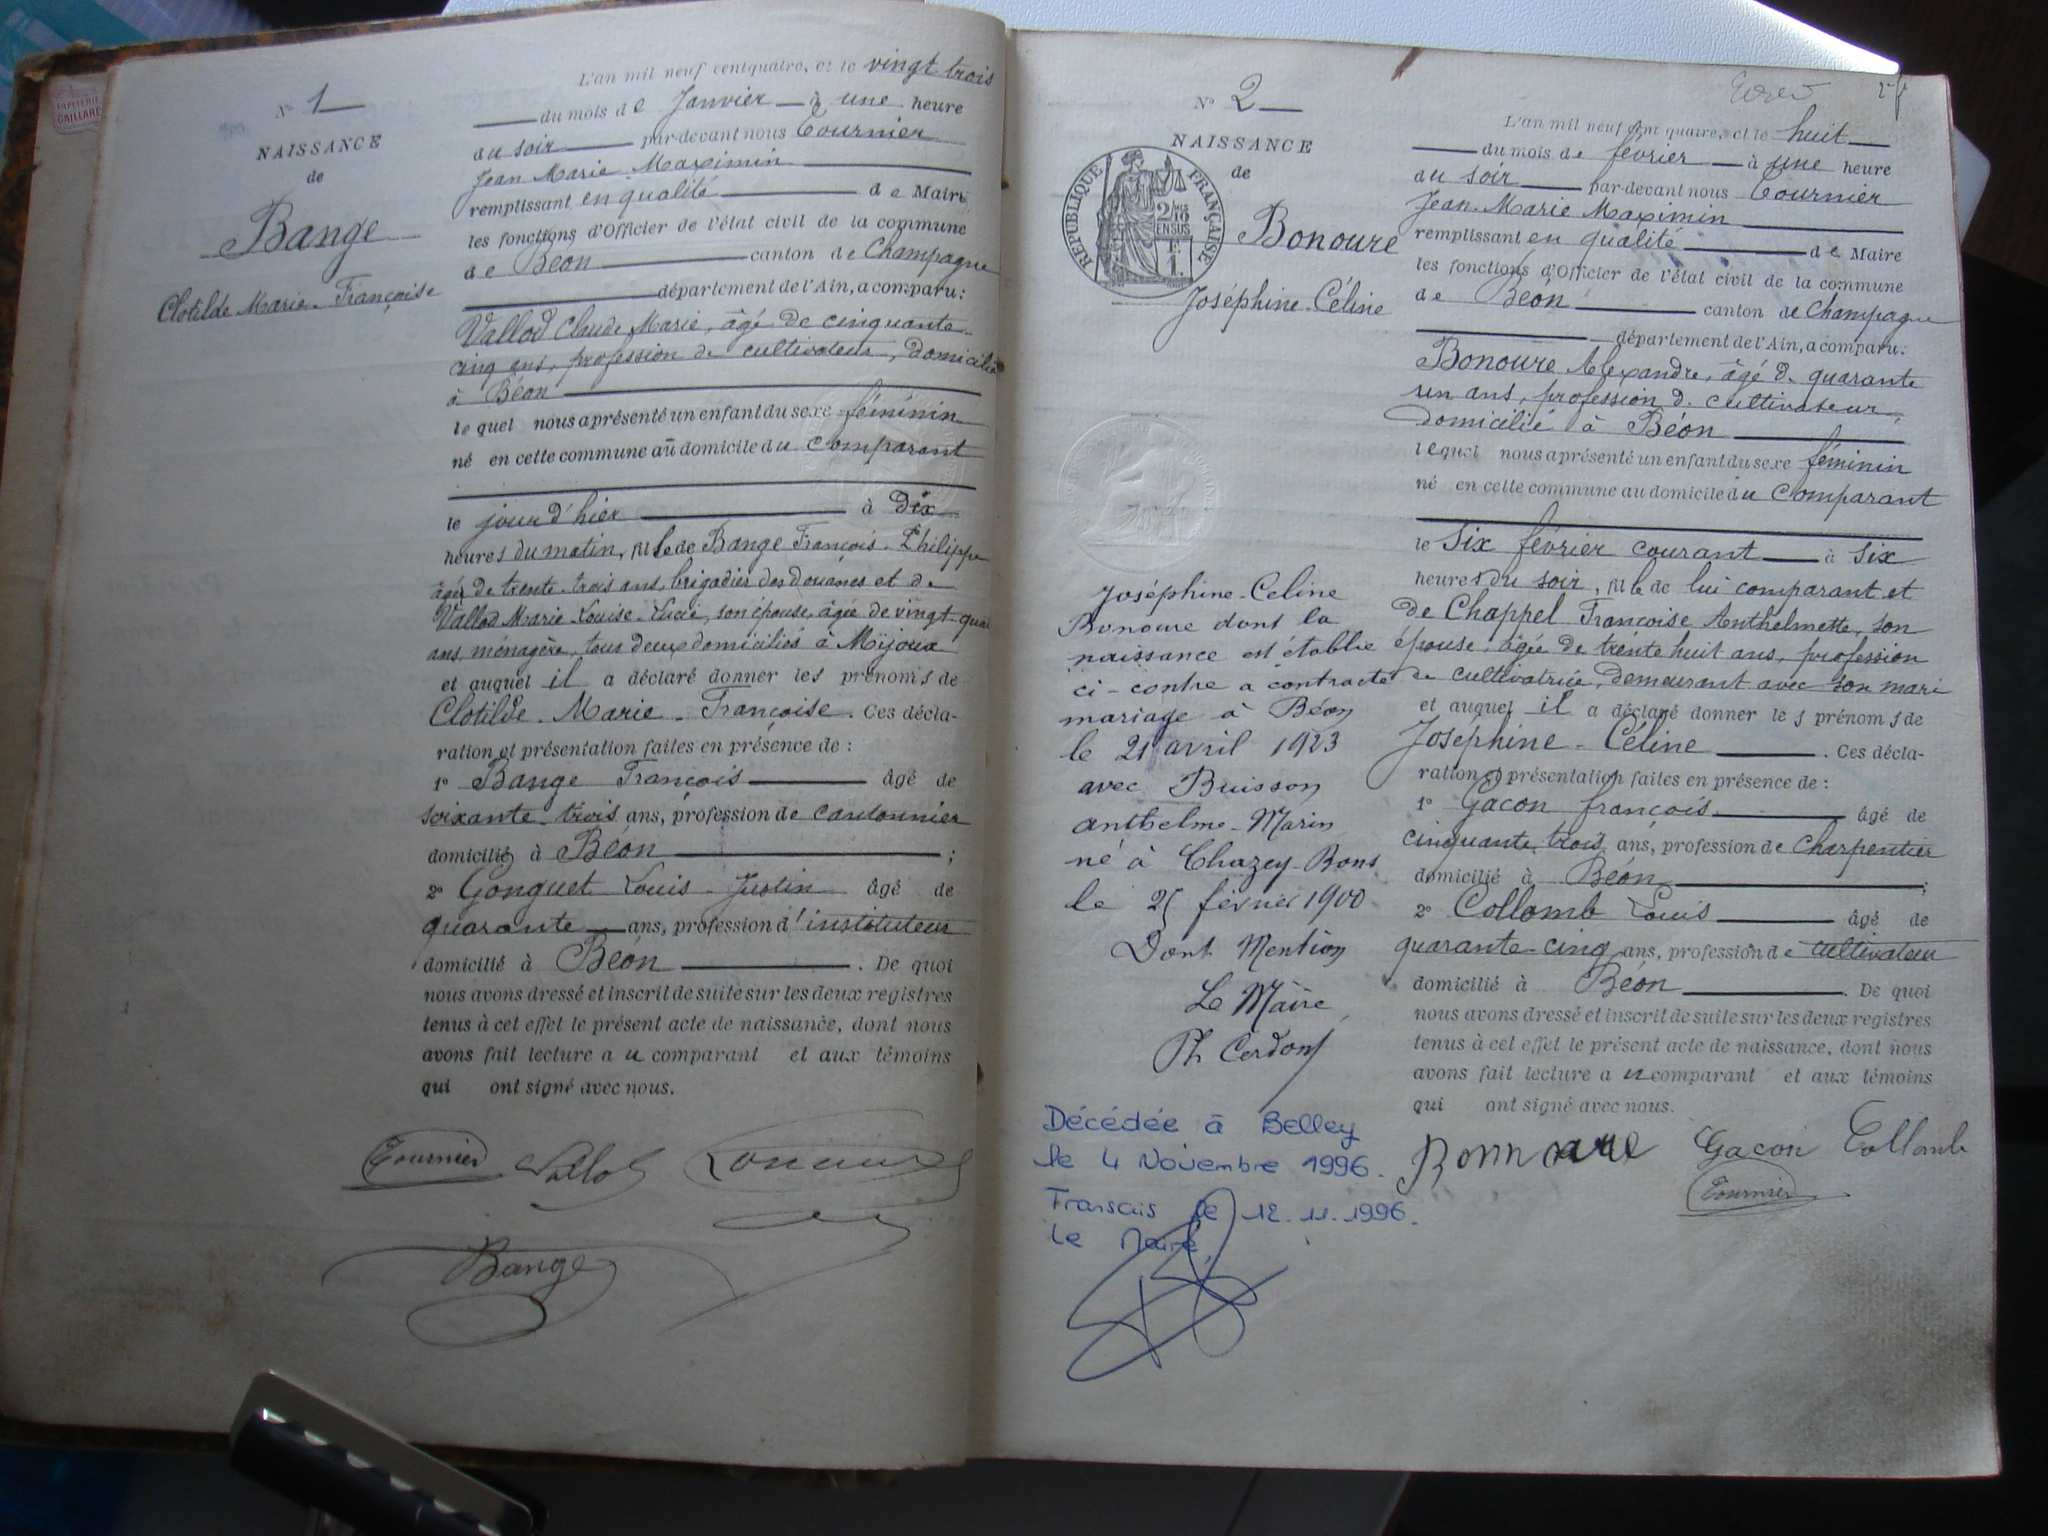 PAPETERIE
GAILLARD
N° 1
NAISSANCE
de
Bange
Clotilde Marie-Françoise
L'an mil neuf cent quatre, et le vingt trois
du mois de Janvier à une heure
du soir par-devant nous Tournier
Jean Marie Maximin
remplissant en qualité de Maire
les fonctions d'Officier de l'état civil de la commune
de Béon canton de Champagne
département de l'Ain, a comparu:
Vallod Claude Marie, âgé de cinquante
cinq ans, profession de cultivateur, domicilié
à Béon
lequel nous a présenté un enfant du sexe féminin
né en cette commune au domicile du comparant
le jour d'hier à Dix
heures du matin, fille de Bange François-Philippe
âgé de trente-trois ans, brigadier des douanes et de
Vallod Marie-Louise-Lucie, son épouse, âgée de vingt-qua
ans, ménagère, tous deux domiciliés à Mijoux
et auquel il a déclaré donner les prénoms de
Clotilde-Marie-Françoise. Ces décla-
ration et présentation faites en présence de :
1° Bange François âgé de
soixante-trois ans, profession de cantonnier
domicilié à Béon ;
2° Gonguet Louis-Justin âgé de
quarante ans, profession d'instituteur
domicilié à Béon. De quoi
nous avons dressé et inscrit de suite sur les deux registres
tenus à cet effet le présent acte de naissance, dont nous
avons fait lecture au comparant et aux témoins
qui ont signé avec nous.
Tournier Vallod
Bange
N° 2
NAISSANCE
de
RÉPUBLIQUE FRANÇAISE
2/10
EN SUS
F
1.
Bonoure
Joséphine-Céline
L'an mil neuf cent quatre, et le huit
du mois de février à une heure
du soir par-devant nous Tournier
Jean-Marie Maximin
remplissant en qualité de Maire
les fonctions d'Officier de l'état civil de la commune
de Béon canton de Champagne
département de l'Ain, a comparu:
Bonoure Alexandre, âgé de quarante
un ans, profession de cultivateur,
domicilié à Béon
lequel nous a présenté un enfant du sexe féminin
né en cette commune au domicile du comparant
le Six février courant à six
heures du soir, fille de lui comparant et
de Chappel Françoise Anthelmette, son
épouse, âgée de trente huit ans, profession
de cultivatrice, demeurant avec son mari
et auquel il a déclaré donner les prénoms de
Joséphine-Céline. Ces décla-
ration et présentation faites en présence de :
1° Gacon françois âgé de
cinquante trois ans, profession de Charpentier
domicilié à Béon ;
2° Collomb Louis âgé de
quarante-cinq ans, profession de cultivateur
domicilié à Béon. De quoi
nous avons dressé et inscrit de suite sur les deux registres
tenus à cet effet le présent acte de naissance, dont nous
avons fait lecture au comparant et aux témoins
qui ont signé avec nous.
Bonnoure Gacon Collomb
Tournier
Joséphine-Celine
Bonoure dont la
naissance est établie
ci-contre a contracté
mariage à Béon
le 21 avril 1923
avec Buisson
anthelme-Marin
né à Chazey-Bons
le 25 février 1900
Dont Mention
Le Maire,
Ph Cerdon
Décédée à Belley
le 4 Novembre 1996.
Transcris le 12.11.1996.
le Maire,